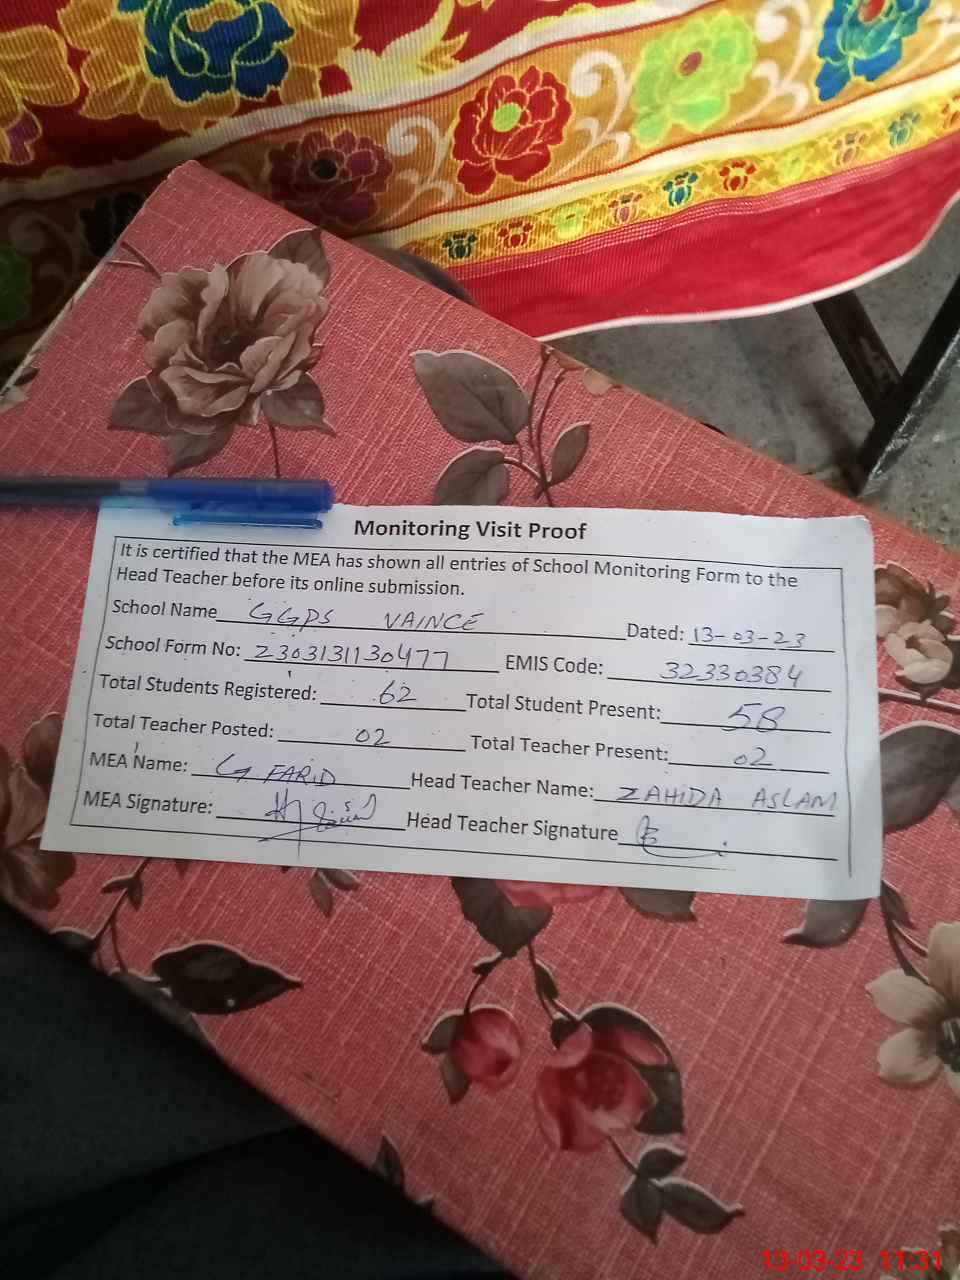 Monitoring Visit Proof
It is certified that the MEA has shown all entries of School Monitoring Form to the
Head Teacher before its online submission.
School Name GGPS VAINCE Dated: 13-03-23
School Form No: 2303131130477 EMIS Code: 32330384
Total Students Registered: 62 Total Student Present: 58
Total Teacher Posted: 02 Total Teacher Present: 02
MEA Name: G FARID Head Teacher Name: ZAHIDA ASLAM
MEA Signature: Head Teacher Signature
13-03-23 11:31